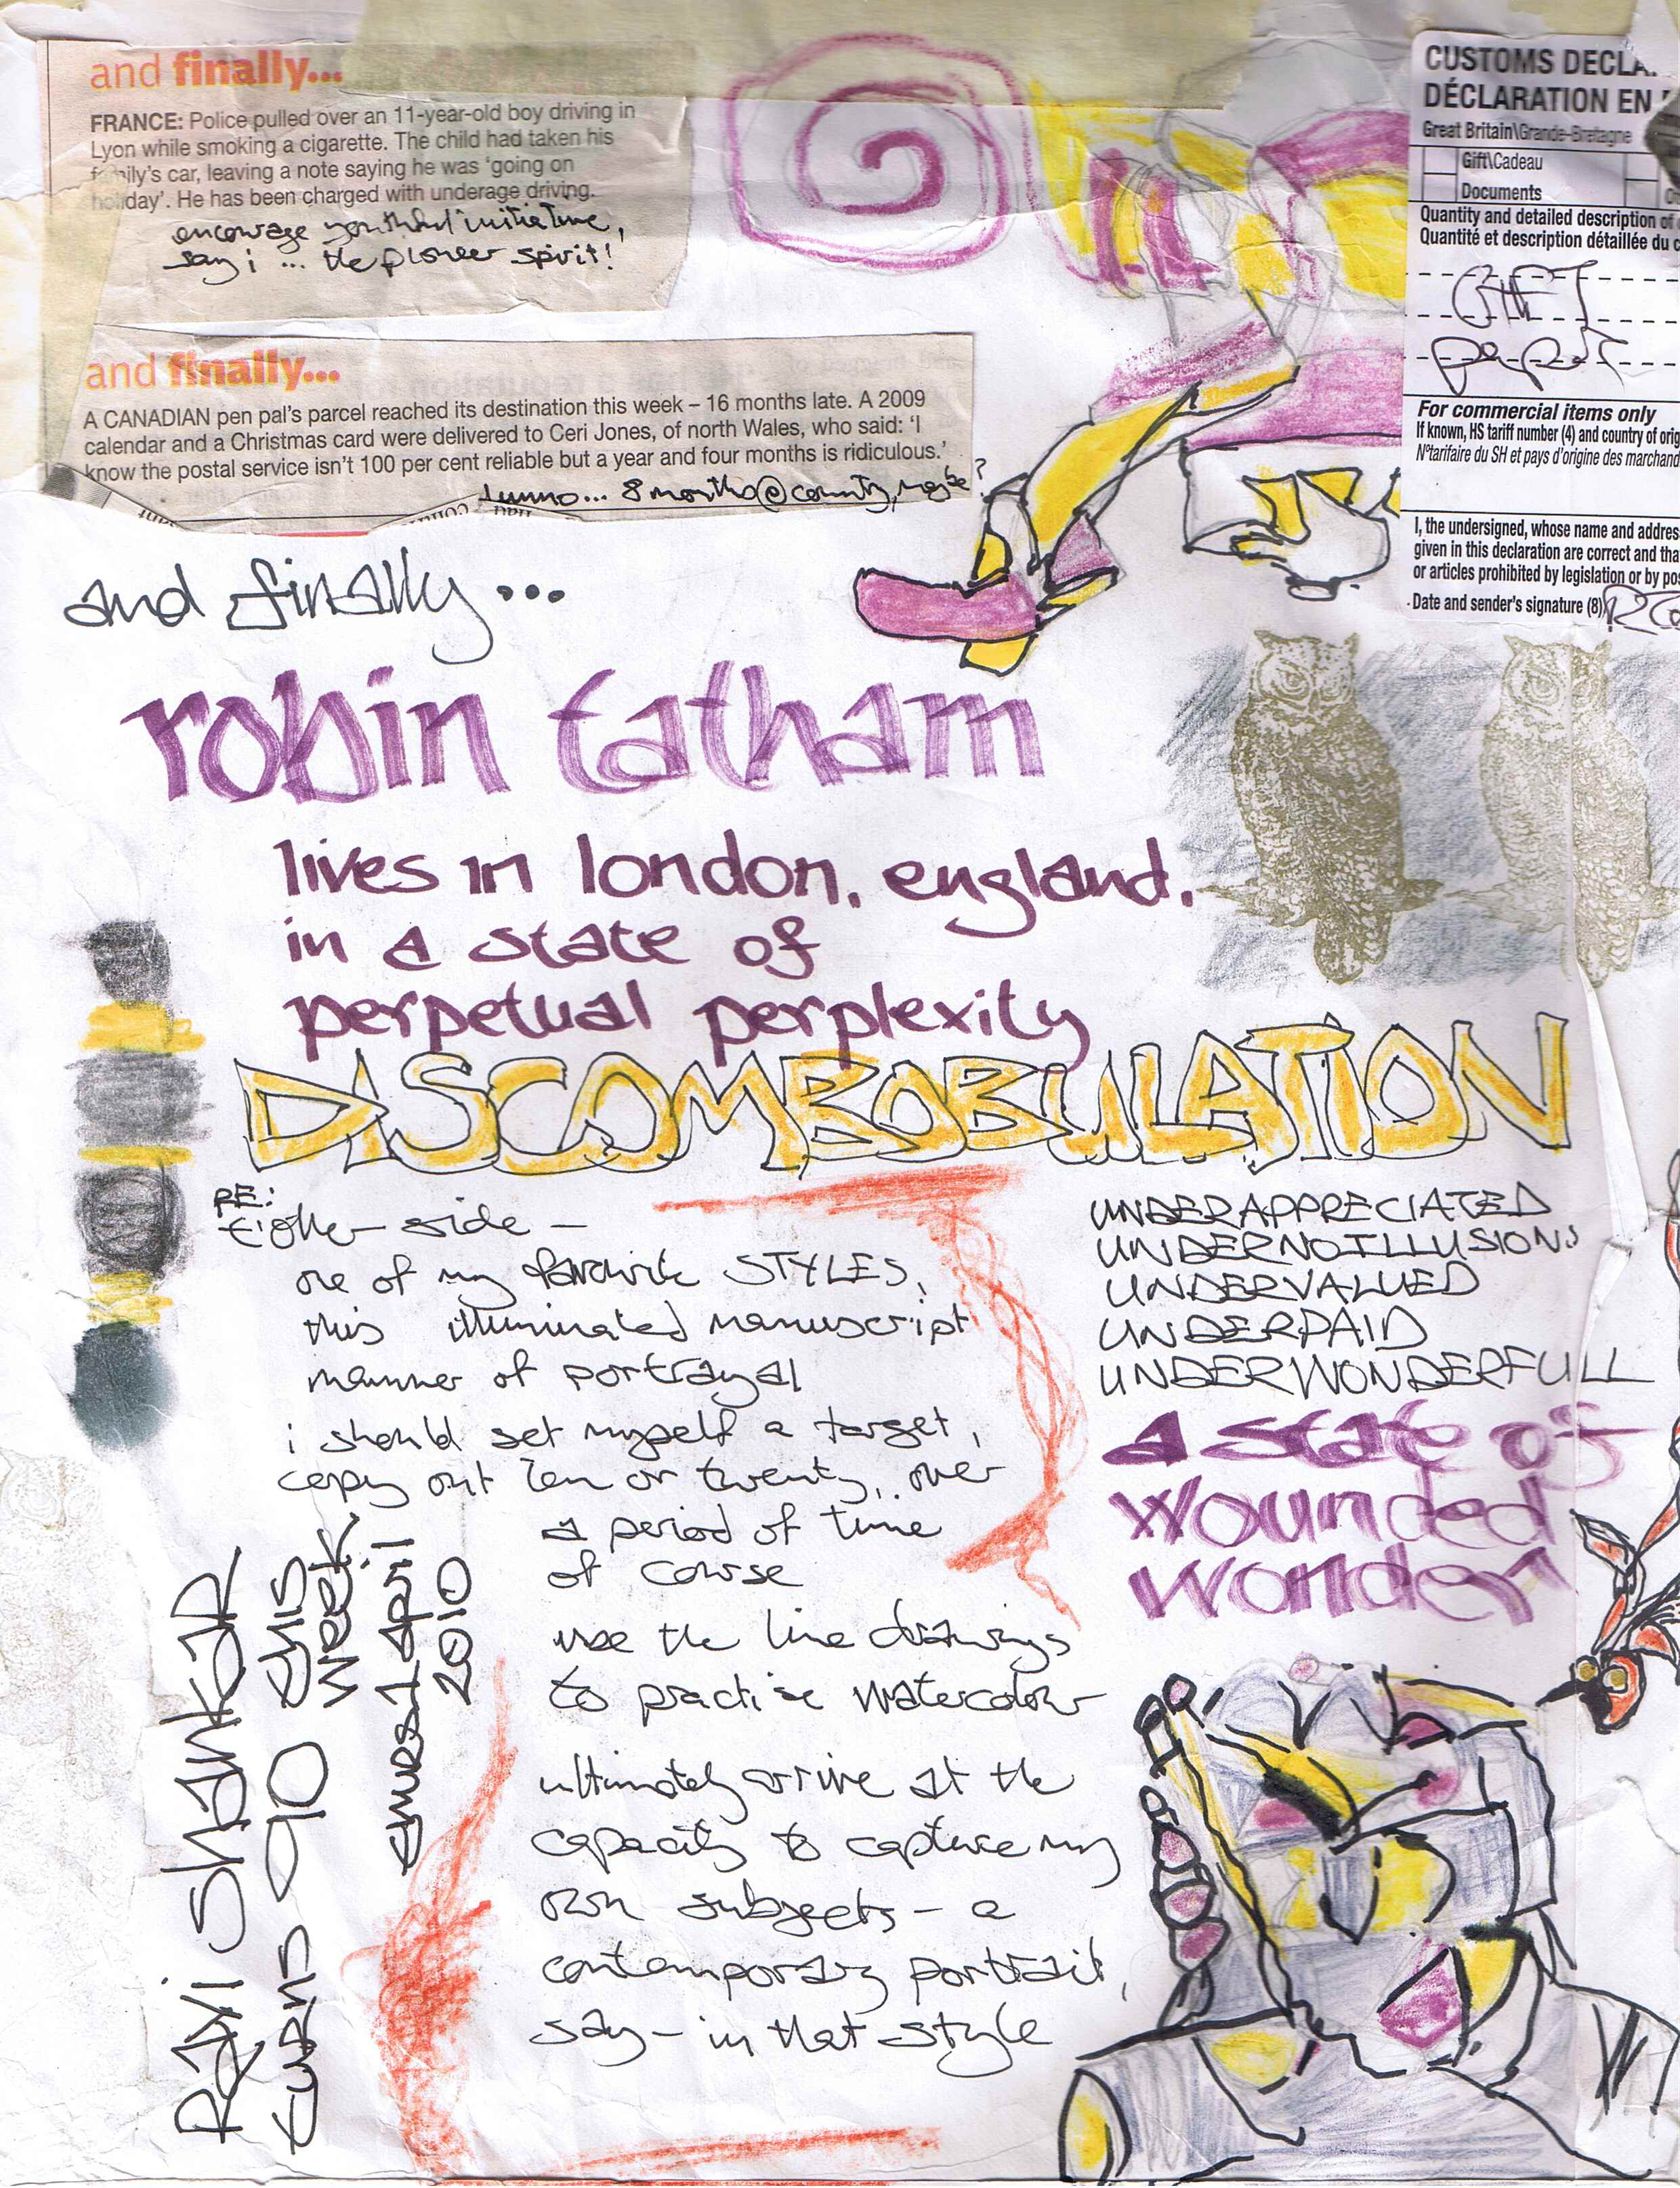 and finally...
FRANCE: Police pulled over an 11-year-old boy driving in
Lyon while smoking a cigarette. The child had taken his
family's car, leaving a note saying he was 'going on
holiday'. He has been charged with underage driving.
encourage youthful initiative,
say i ... the pioneer spirit!
and finally...
A CANADIAN pen pal's parcel reached its destination this week – 16 months late. A 2009
calendar and a Christmas card were delivered to Ceri Jones, of north Wales, who said: 'I
know the postal service isn't 100 per cent reliable but a year and four months is ridiculous.'
8 months @ county, maybe?
CUSTOMS DECLA
DÉCLARATION EN
Great Britain\Grande-Bretagne
Gift\Cadeau
Documents
Quantity and detailed description of
Quantité et description détaillée du c
GIFT
paper
For commercial items only
If known, HS tariff number (4) and country of orig
N°tarifaire du SH et pays d'origine des marchand
I, the undersigned, whose name and addres
given in this declaration are correct and tha
or articles prohibited by legislation or by pos
Date and sender's signature (8)
and finally...
robin tatham
lives in london, england,
in a state of
perpetual perplexity
DISCOMBOBULATION
RE:
Either side –
one of my favourite STYLES,
this illuminated manuscript
manner of portrayal
i should set myself a target,
copy out ten or twenty, over
a period of time
of course
use the line drawings
to practise watercolour
ultimately arrive at the
capacity to capture my
own subjects – a
contemporary portrait,
say – in that style
UNDERAPPRECIATED
UNDERNOILLUSIONS
UNDERVALUED
UNDERPAID
UNDERWONDERFULL
A state of
wounded
wonder
RAVI SHANKAR
turns 90 this
week
thurs 1 april
2010